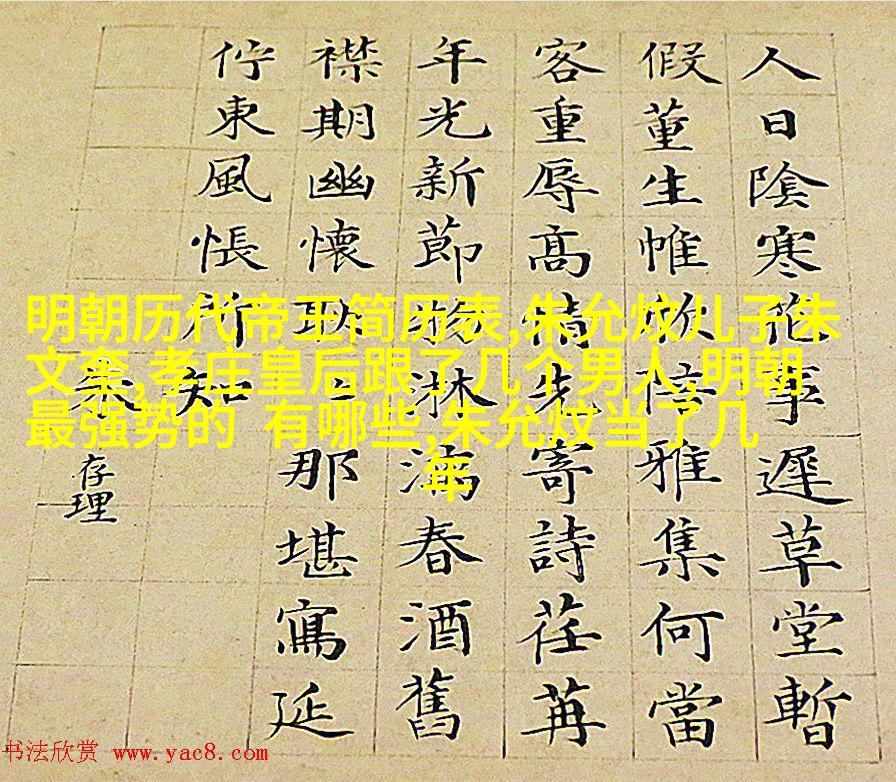 人日陰寒花事遲草堂暫
假董生帷欣陪雅集何當
客重辱高情先寄詩荏苒
年光新節物淋漓春酒舊
襟期幽懷耿〻那堪寫延
佇東風悵所知
朱存理
明朝历代帝王简历表,朱允炆儿子朱
文奎,孝庄皇后跟了几个男人,明朝
最强势的 有哪些,朱允炆当了几
年
书法欣赏 www.yac8.com